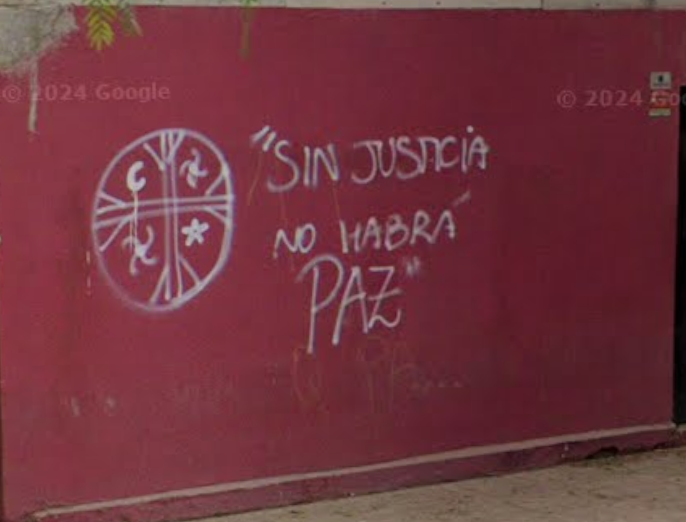 © 2024 Google
© 2024 Goo
"SIN JUSTICIA
NO HABRÁ
PAZ"